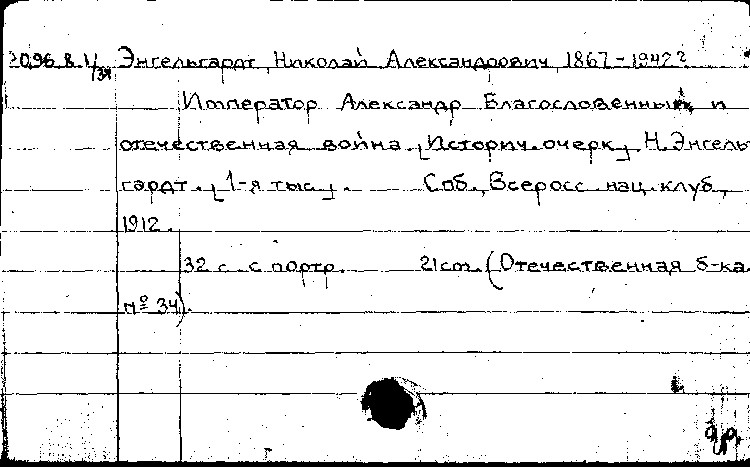 2096.8.1/34 Энгельгардт, Николай Александрович, 1867-1942?
Император Александр Благословенный и
отечественная война. [Историч. очерк] Н. Энгель
гардт. [1-я тыс]. Спб., Всеросс. нац. клуб,
1912.
32 с. с портр. 21 cm. (Отечественная б-ка
№ 34).